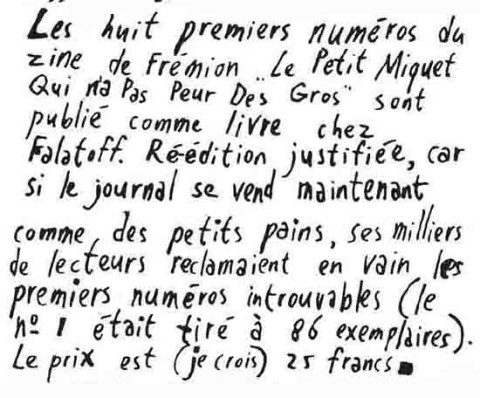 Les huit premiers numéros du
zine de Frémion "Le Petit Miquet
Qui n'a Pas Peur Des Gros" sont
publié comme livre chez
Falatoff. Ré-édition justifiée, car
si le journal se vend maintenant
comme des petits pains, ses milliers
de lecteurs reclamaient en vain les
premiers numéros introuvables (le
nº 1 était tiré à 86 exemplaires).
Le prix est (je crois) 25 francs